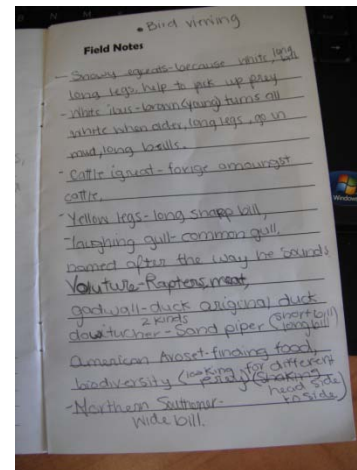 • Bird viewing
Field Notes
- Snowy egreats - because white, long bill
long legs, help to pick up prey
- White ibis - brown (young) turns all
white when older, long legs, go in
mud, long beills.
- Cattle igreat - forige amoungst
cattle.
- Yellow legs - long sharp bill,
- laughing gull - common gull,
named after the way he sounds
Voluture - Rapters, meat,
gadwall - duck original duck
2 kinds (short bill
dowitucher - Sand piper long bill)
American Avoset - finding food
biodiversity (looking for different
prey) (Shaking head side
- Northern to side)
Wide bill.
Windows